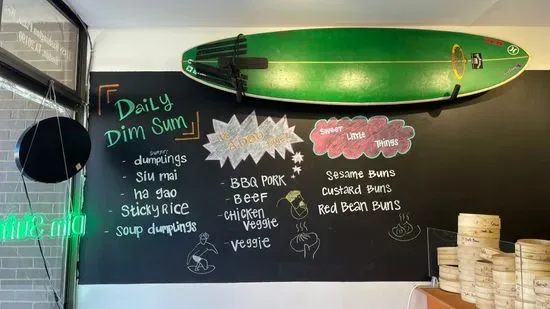 Daily
Dim Sum
- dumplings
- Siu mai
- ha gao
- Sticky Rice
- Soup dumplings
- BBQ PORK
- BEEF
- Chicken
Veggie
- Veggie
Sweet Little
Things
Sesame Buns
Custard Buns
Red Bean Buns